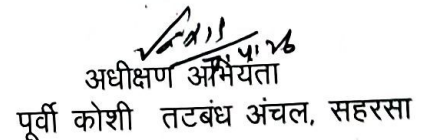 अधीक्षण अभियंता
पूर्वी कोशी तटबंध अंचल, सहरसा